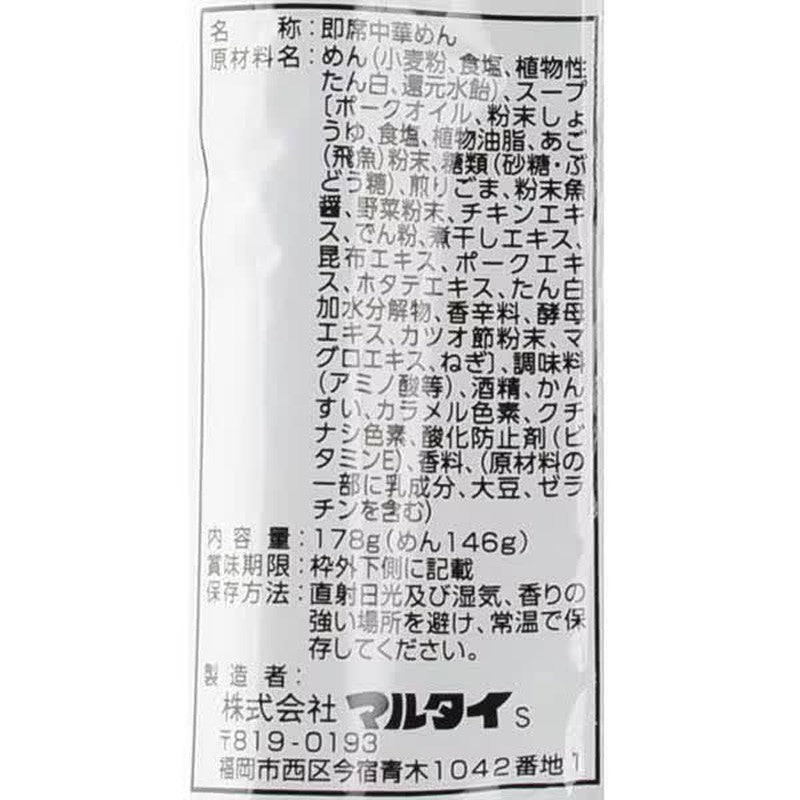 名称:即席中華めん
原材料名:めん(小麦粉、食塩、植物性
たん白、還元水飴)、スープ
〔ポークオイル、粉末しょ
うゆ、食塩、植物油脂、あご
(飛魚)粉末、糖類(砂糖・ぶ
どう糖)、煎りごま、粉末魚
醤、野菜粉末、チキンエキ
ス、でん粉、煮干しエキス、
昆布エキス、ポークエキ
ス、ホタテエキス、たん白
加水分解物、香辛料、酵母
エキス、カツオ節粉末、マ
グロエキス、ねぎ〕、調味料
(アミノ酸等)、酒精、かん
すい、カラメル色素、クチ
ナシ色素、酸化防止剤(ビ
タミンE)、香料、(原材料の
一部に乳成分、大豆、ゼラ
チンを含む)
内容量:178g(めん146g)
賞味期限:枠外下側に記載
保存方法:直射日光及び湿気、香りの
強い場所を避け、常温で保
存してください。
製造者:
株式会社マルタイ S
〒819-0193
福岡市西区今宿青木1042番地1